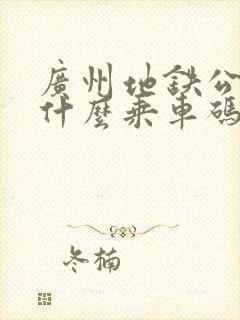 廣州地鉄公
什麼乘車碼
冬楠